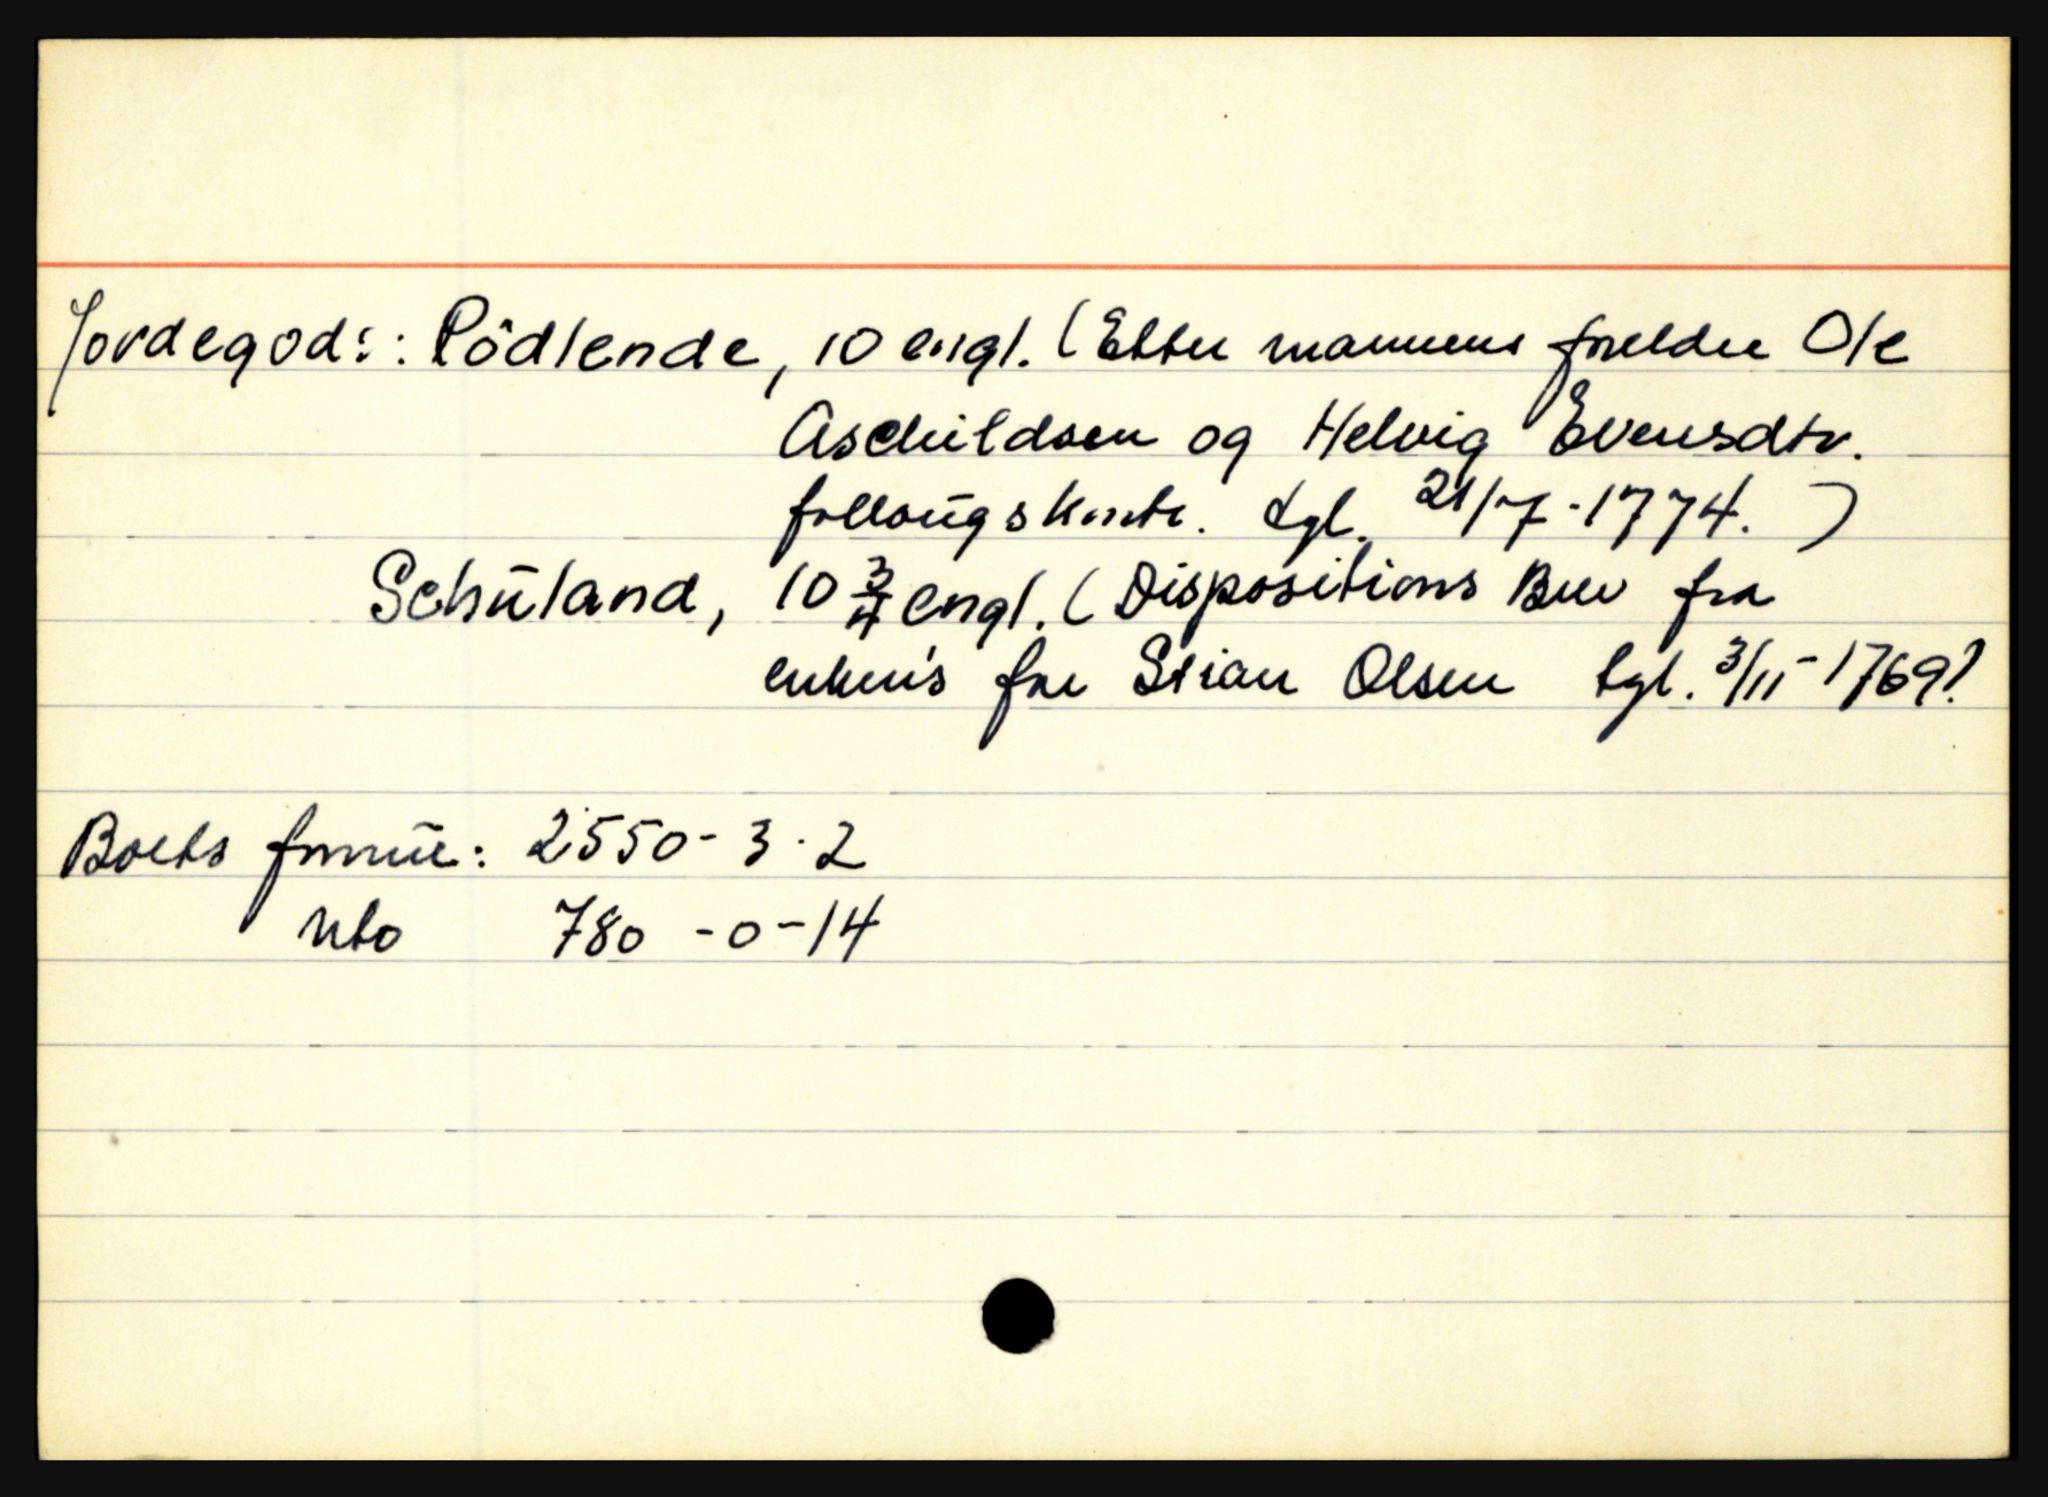 Jordegods: Rödlende, 10 engl. (Etter mannens foreldre Ole
Aschildsen og Helvig Evensdtr.
follougskontr. tgl. 21/7-1774.)
Schüland, 10 3/4 engl. (Dispositions Brev fra
enken's far Stian Olsen tgl. 3/11-1769)
Boets formue: 2550-3-2
nto 780-0-14